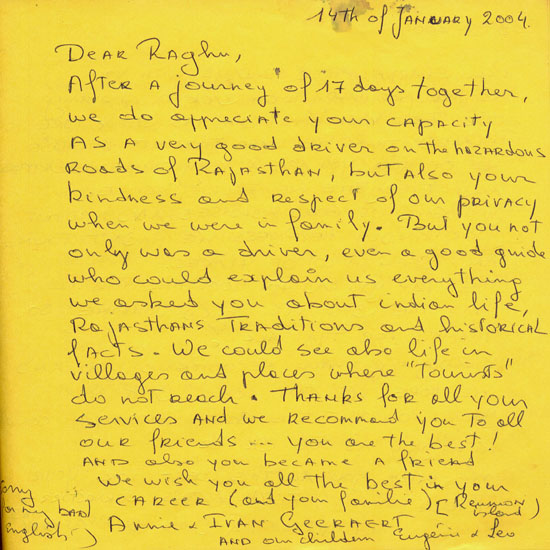 14th of January 2004.
Dear Raghu,
After a journey of 17 days together,
we do appreciate your capacity
as a very good driver on the hazardous
roads of Rajasthan, but also your
kindness and respect of our privacy
when we were in family. But you not
only was a driver, even a good guide
who could explain us everything
we asked you about indian life,
Rajasthans traditions and historical
facts. We could see also life in
villages and places where "Tourists"
do not reach. Thanks for all your
services and we recommand you to all
our friends ... you are the best!
and also you became a friend
We wish you all the best in your
career (and your familie)
Annie & Ivan Geeraert [Reunion island)
and our children Eugénie & Leo
sorry
for my bad
english